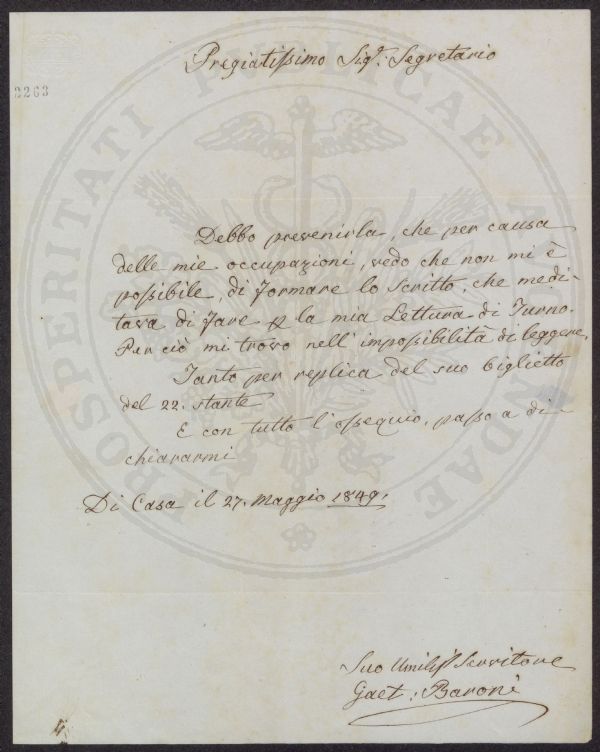 Pregiatissimo Sigr. Segretario
2263
Debbo prevenirla, che per causa
delle mie occupazioni, vedo che non mi è
possibile, di formare lo Scritto, che medi-
tava di fare p la mia Lettura di Turno.
Per ciò mi trovo nell' impossibilità di leggere.
Tanto per replica del suo biglietto
del 22. stante
E con tutto l'ossequio, passo a di-
chiararmi
Di Casa il 27. Maggio 1849.
Suo Umiliss Servitore
Gaet: Baroni
PROSPERITATI PUBLICAE AUGENDAE